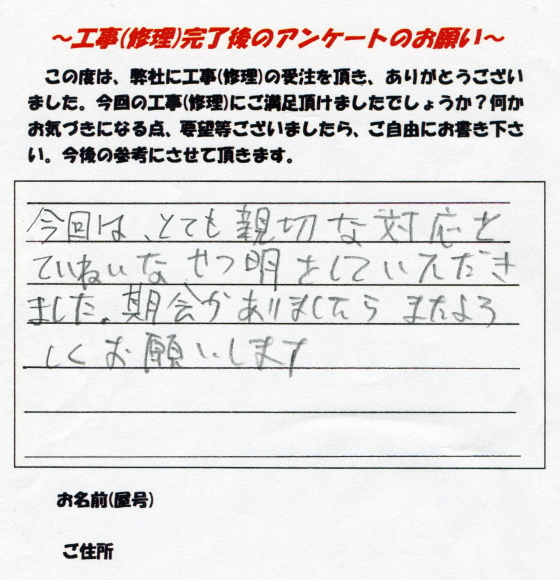 ～工事(修理)完了後のアンケートのお願い～
この度は、弊社に工事(修理)の受注を頂き、ありがとうござい
ました。今回の工事(修理)にご満足頂けましたでしょうか？何か
お気づきになる点、要望等ございましたら、ご自由にお書き下さ
い。今後の参考にさせて頂きます。
今回は、とても親切な対応と
ていねいな せつ明をしていただき
ました。期会がありましたら またよろ
しくお願いします
お名前(屋号)
ご住所